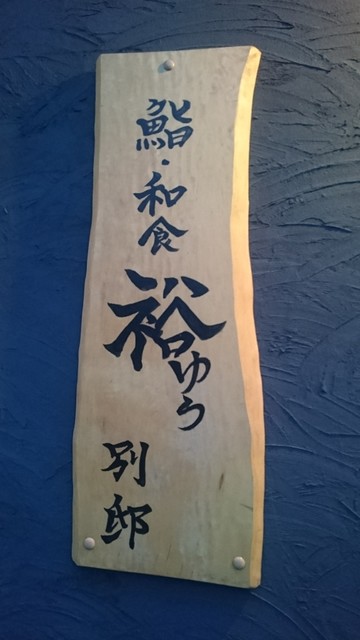 鮨・和食
裕ゆう
別邸